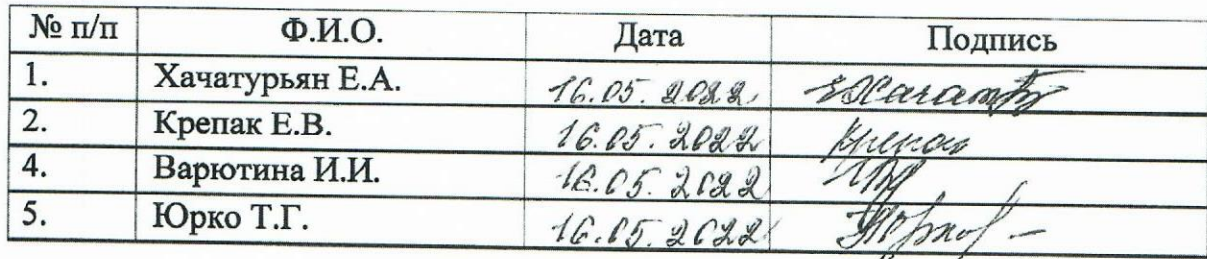 № п/п Ф.И.О. Дата Подпись
1. Хачатурьян Е.А. 16.05.2022
2. Крепак Е.В. 16.05.2022
4. Варютина И.И. 16.05.2022
5. Юрко Т.Г. 16.05.2022